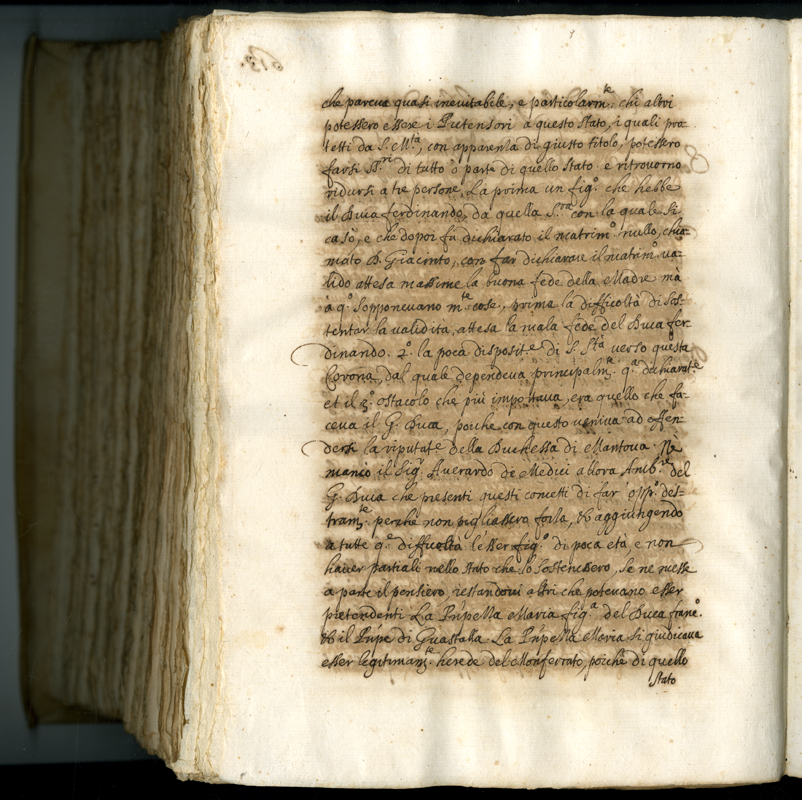 che pareua quasi ineuitabile, e particolarm.te chi altri
potessero essere i Pretensori a questo stato, i quali pro
tetti da S. M.tà, con apparenza di giusto titolo, potessero
farsi SS.ri di tutto ò parte di quello stato e ritrouorno
ridursi a tre persone, La prima un fig.o che hebbe
il Duca ferdinando, da quella S.ra con la quale si
casò, e che dopoi fù dichiarato il matrim.o nullo, chia-
mato D. Giacinto, con far dichiarare il matrim.o ua-
lido attesa massime la buona fede della Madre mà
à q.o s'opponeuano m.te cose, prima la difficoltà di sos-
tentar la validità, attesa la mala fede del Duca fer-
dinando. 2.o la poca disposit.e di S. S.tà verso questa
Corona, dal quale dependeua principalm.te q.a dichiarat.e
et il 3.o ostacolo che piu importaua, era quello che fa-
ceua il G. Duca, poiche con questo ueniua ad offen-
dersi la riputat.e della Duchessa di Mantoua. Nè
mancò il Sig.r Auerardo de Medici allora Amb.re del
G. Duca che presentì questi concetti di far des-
tram.te perche non pigliassero forza, & aggiungendo
a tutte q.e difficoltà l'esser fig.o di poca età, e non
hauer partiali nello stato che lo sostenessero, se ne messe
a parte il pensiero, restandoui altri che poteuano esser
pretendenti La Prñpessa Maria fig.a del Duca franc.o
& il Prñpe di Guastalla. La Prñpessa Maria si giudicaua
esser legitimam.te herede del Monferrato, poiche di quello
stato